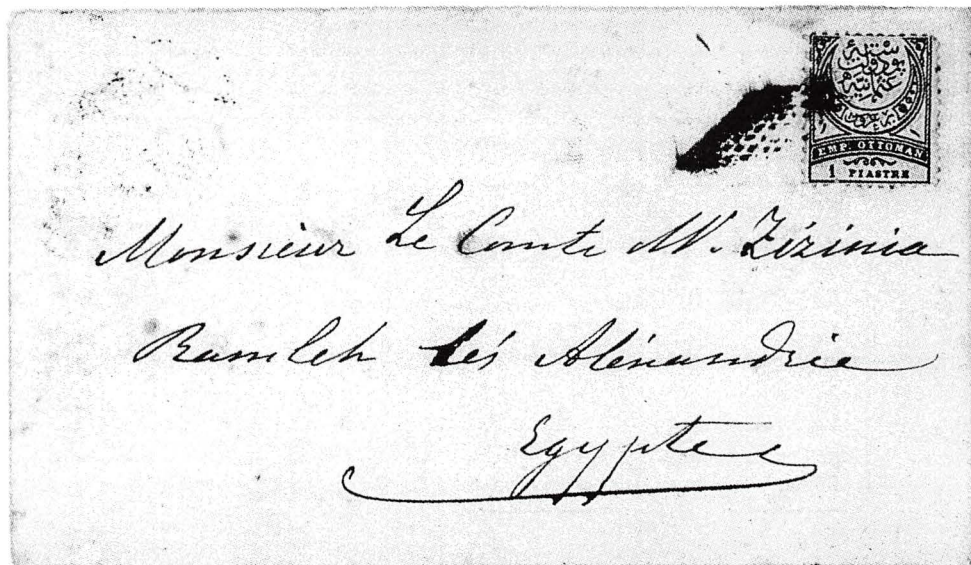 EMP. OTTOMAN
1 PIASTRE
Monsieur Le Comte M. Zizinia
Ramleh lès Aléxandrie
Egypte